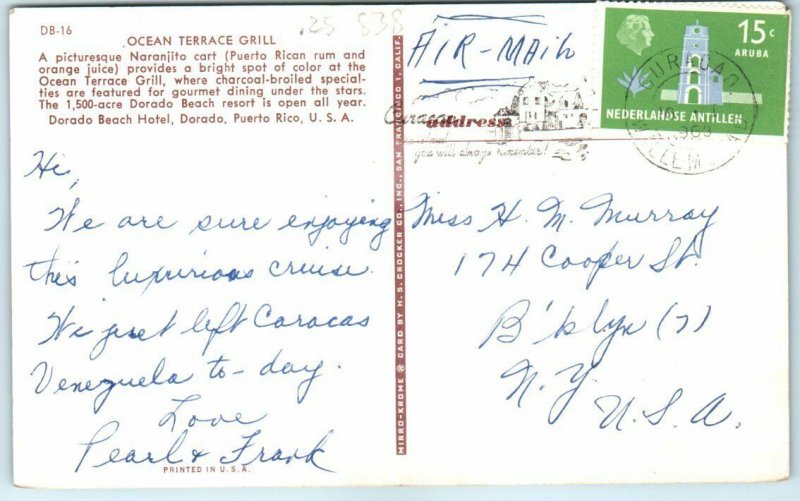 DB-16
OCEAN TERRACE GRILL
A picturesque Naranjito cart (Puerto Rican rum and
orange juice) provides a bright spot of color at the
Ocean Terrace Grill, where charcoal-broiled special-
ties are featured for gourmet dining under the stars.
The 1,500-acre Dorado Beach resort is open all year.
Dorado Beach Hotel, Dorado, Puerto Rico, U. S. A.
.25 838
Hi,
We are sure enjoying
this luxurious cruise.
We just left Caracas
Venezuela to-day.
Love
Pearl & Frank
PRINTED IN U.S.A.
MIRRO-KROME ® CARD BY H. S. CROCKER CO., INC., SAN FRANCISCO 1, CALIF.
AIR-MAIL
15c
ARUBA
NEDERLANDSE ANTILLEN
CURACAO
WILLEMSTAD
Curacao
address
you will always remember!
Miss H. M. Murray
174 Cooper St.
B'klyn (7)
N.Y.
U.S.A.